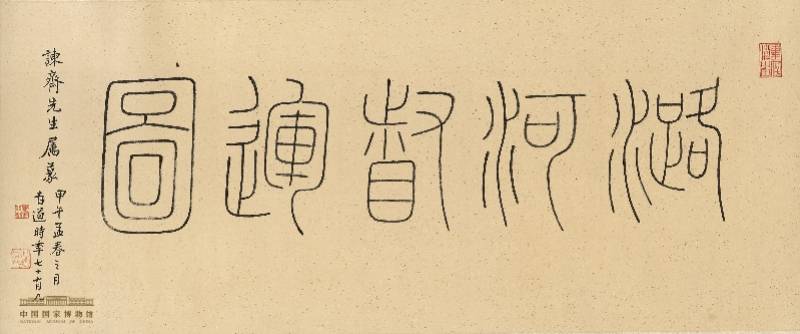 潞河督運圖
諫齋先生屬篆
甲午孟春之月
道時年七十有
中国国家博物馆
NATIONAL MUSEUM OF CHINA